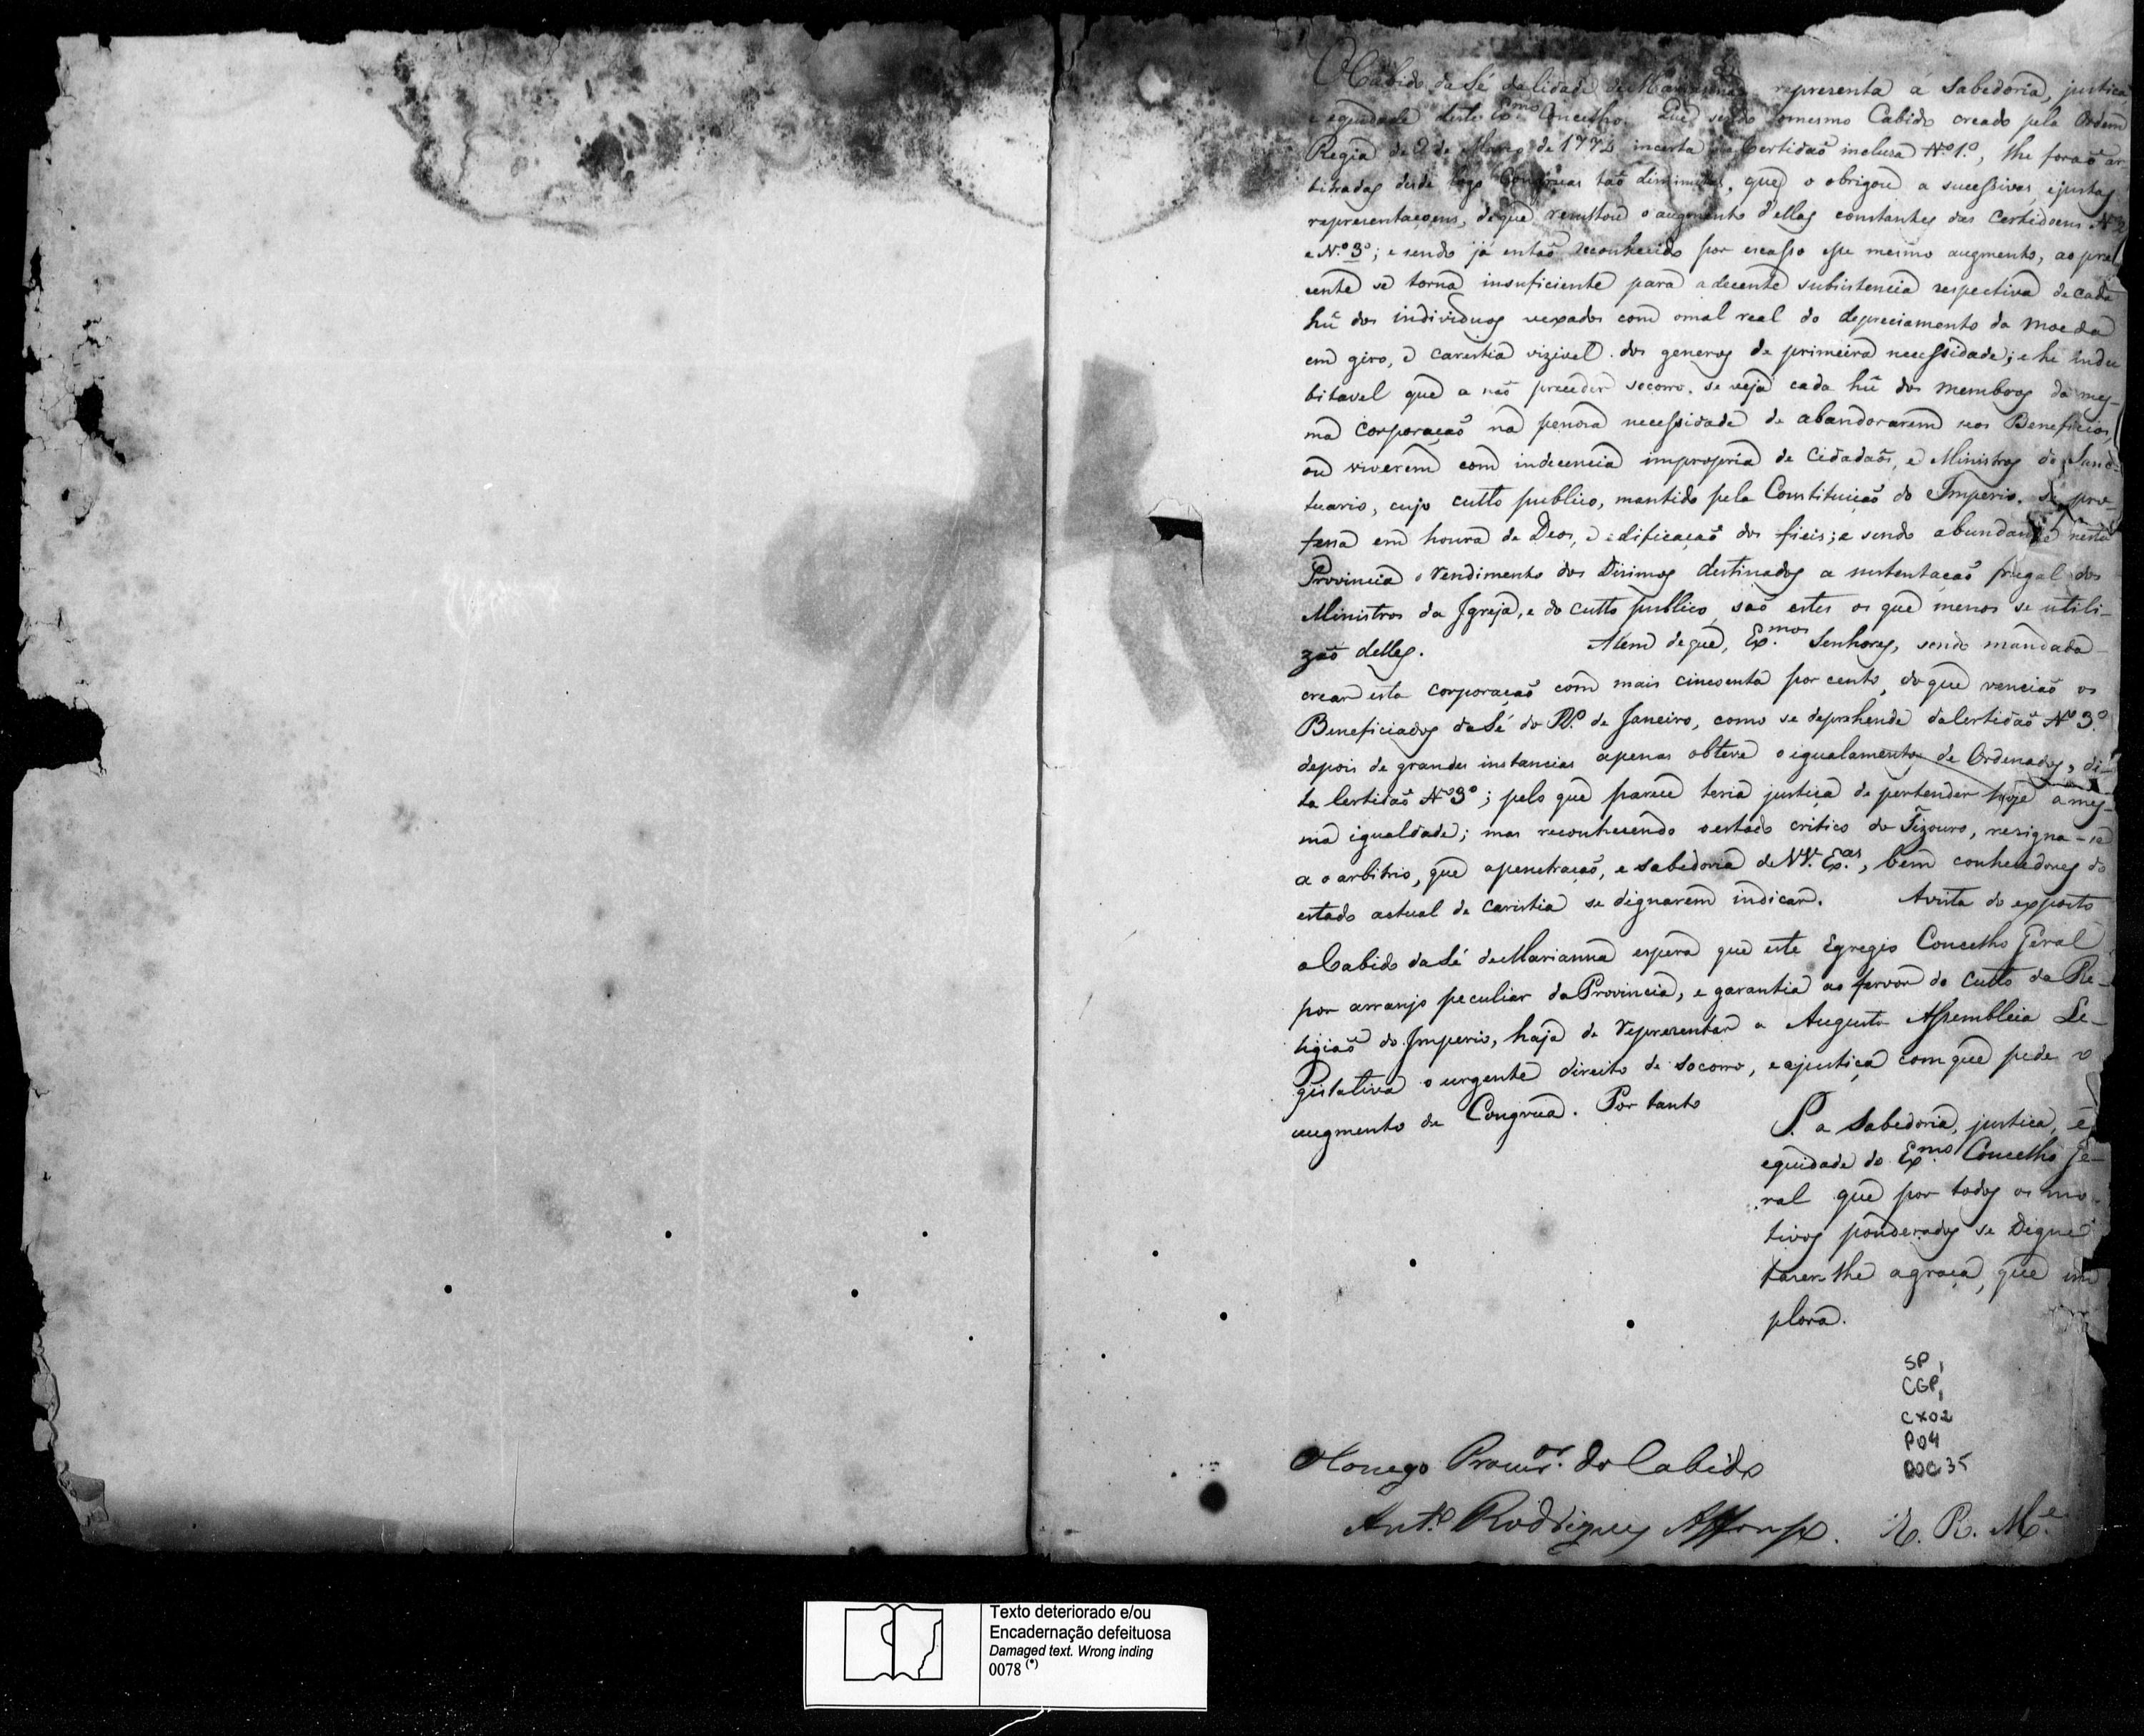 O Cabido da Sé da Cidade de Marianna representa á Sabedoria, justiça,
e equidade deste Ex.mo Concelho. Que sendo o mesmo Cabido creado pela Ordem
Regia de 2 de Março de 1772 incerta na Certidaõ inclusa N.º 1.º, lhe foraõ ar-
bitradas desde logo Congruas taõ diminutas, que o obrigou a sucessivas, e justas
representaçoens, de que resultou o augmento d'ellas constantes das Certidoens N.º 2
e N.º 3.º; e sendo já entaõ reconhecido por escasso esse mesmo augmento, ao pre-
cente se torna insuficiente para a decente subsistencia respectiva de cada
hũ dos individuos vexados com o mal real do depreciamento da moeda
em giro, e carestia vizivel dos generos de primeira necessidade; e he indu
bitavel que a naõ preceder socorro, se veja cada hũ dos membros da mes-
ma Corporaçaõ na penosa necessidade de abandonarem seos Beneficios,
ou viverem com indecencia impropria de Cidadaõs, e Ministros do Sanc-
tuario, cujo culto publico, mantido pela Constituiçaõ do Imperio, se pro-
fessa em honra de Deos, e edificaçaõ dos fieis; e sendo abundante nesta
Provincia o rendimento dos Dizimos destinados a sustentaçaõ frugal dos
Ministros da Igreja, e do culto publico, saõ estes os que menos se utili-
zaõ delles. Alem de que, Ex.mos Senhores, sendo mandada
crear esta corporaçaõ com mais cincoenta por cento, do que venciaõ os
Beneficiados da Sé do R.º de Janeiro, como se deprehende da Certidaõ N.º 3.º
depois de grandes instancias apenas obteve o igualamento de Ordenados, di-
ta Certidaõ N.º 3.º; pelo que parece teria justiça de pertender hoje a mes-
ma igualdade; mas reconhecendo o estado critico do Tizouro, resigna-se
a o arbitrio, que a penetraçaõ, e sabedoria de VV. Ex.as, bem conhecedores do
estado actual de caristia se dignarem indicar. A vista do exposto
o Cabido da Sé de Marianna espera que este Egregio Concelho Geral
por arranjo peculiar da Provincia, e garantia ao fervor do culto da Re-
ligiaõ do Imperio, haja de representar a Augusta Assembleia Le-
gislativa o urgente direito de socorro, e a justiça com que pede o
augmento de Congrua. Por tanto
P. a Sabedoria, justiça, e
equidade do Ex.mo Concelho Ge-
ral que por todos os mo-
tivos ponderados se digne
fazer-lhe a graça, que im
plora.
SP,
CGP,
CX02
P04
DOC 35
O Conego Procur.or do Cabido
Ant.º Rodrigues Affonso. E. R. M.e
Texto deteriorado e/ou
Encadernação defeituosa
Damaged text. Wrong inding
0078 (*)